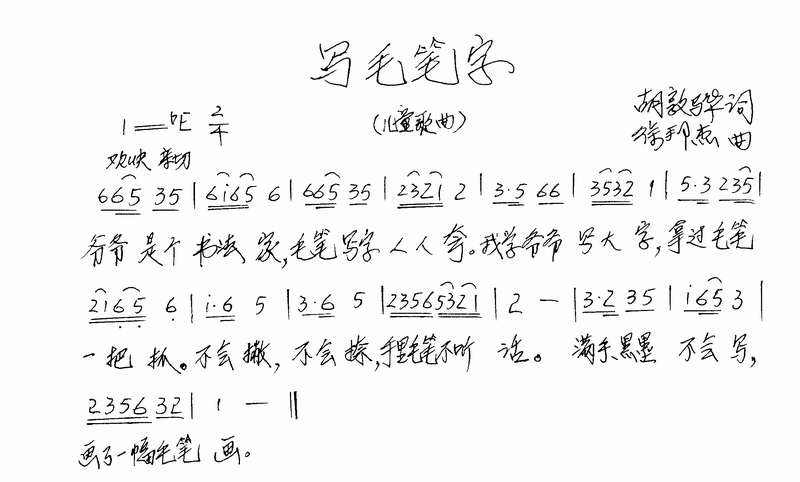 写毛笔字
1=bE 2/4
(儿童歌曲)
胡敦骅词
徐邦杰曲
欢快 亲切
665 35 | 6i65 6 | 665 35 | 2321 2 | 3·5 66 | 3532 1 | 5·3 235 |
爷爷是个书法家,毛笔写字人人夸。我学爷爷写大字,拿过毛笔
2165 6 | i·6 5 | 3·6 5 | 23565321 | 2 — | 3·2 35 | i65 3 |
一把抓。不会撇,不会捺,手里毛笔不听话。满手黑墨不会写,
2356 32 | 1 — ‖
画了一幅毛笔画。